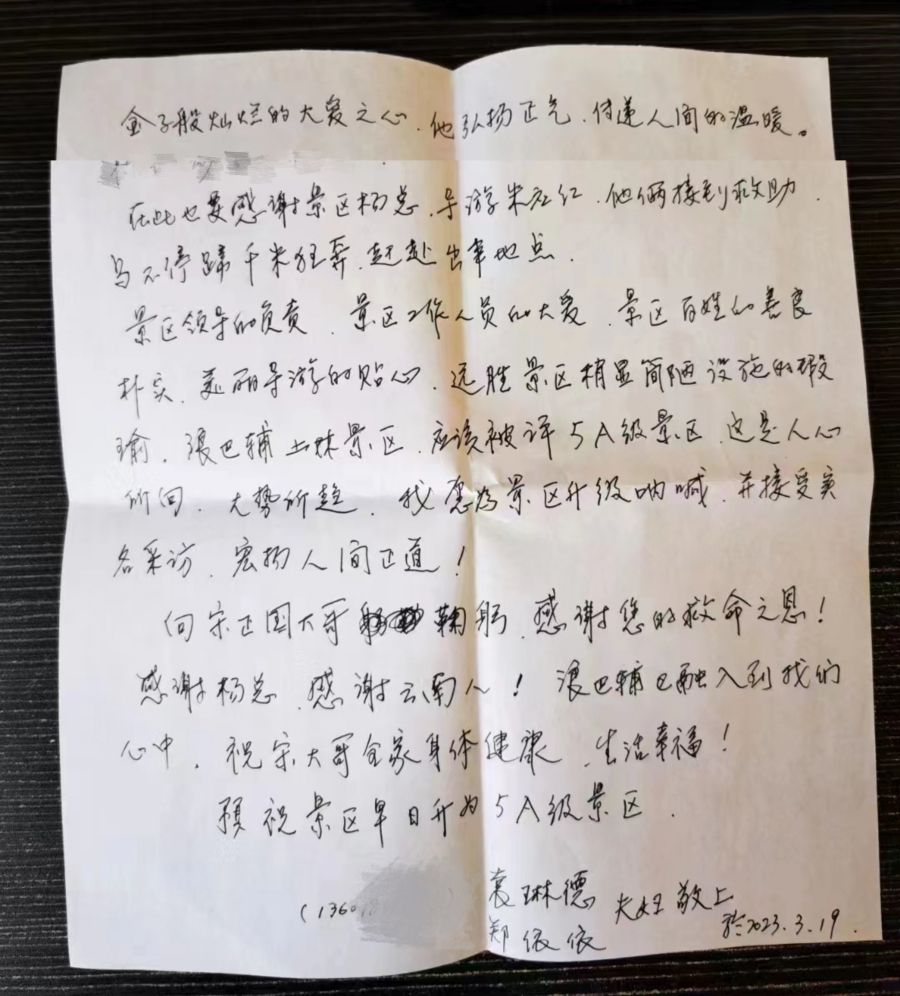 金子般灿烂的大爱之心，他弘扬正气，传递人间的温暖。
在此也要感谢景区杨总，导游朱应红，他俩接到救助，
马不停蹄千米狂奔，赶赴出事地点．
景区领导的负责，景区工作人员的大爱，景区百姓的善良
朴实，美丽导游的贴心，远胜景区稍显简陋设施的瑕
瑜，浪巴铺土林景区，应该被评5A级景区，这是人心
所向，大势所趋，我愿为景区升级呐喊，并接受实
名采访，宏扬人间正道！
向宋正国大哥鞠躬，感谢您的救命之恩！
感谢杨总，感谢云南人！浪巴铺已融入到我们
心中，祝宋大哥全家身体健康，生活幸福！
预祝景区早日升为5A级景区．
袁琳德
郑依依 夫妇敬上
(1360
于2023.3.19.